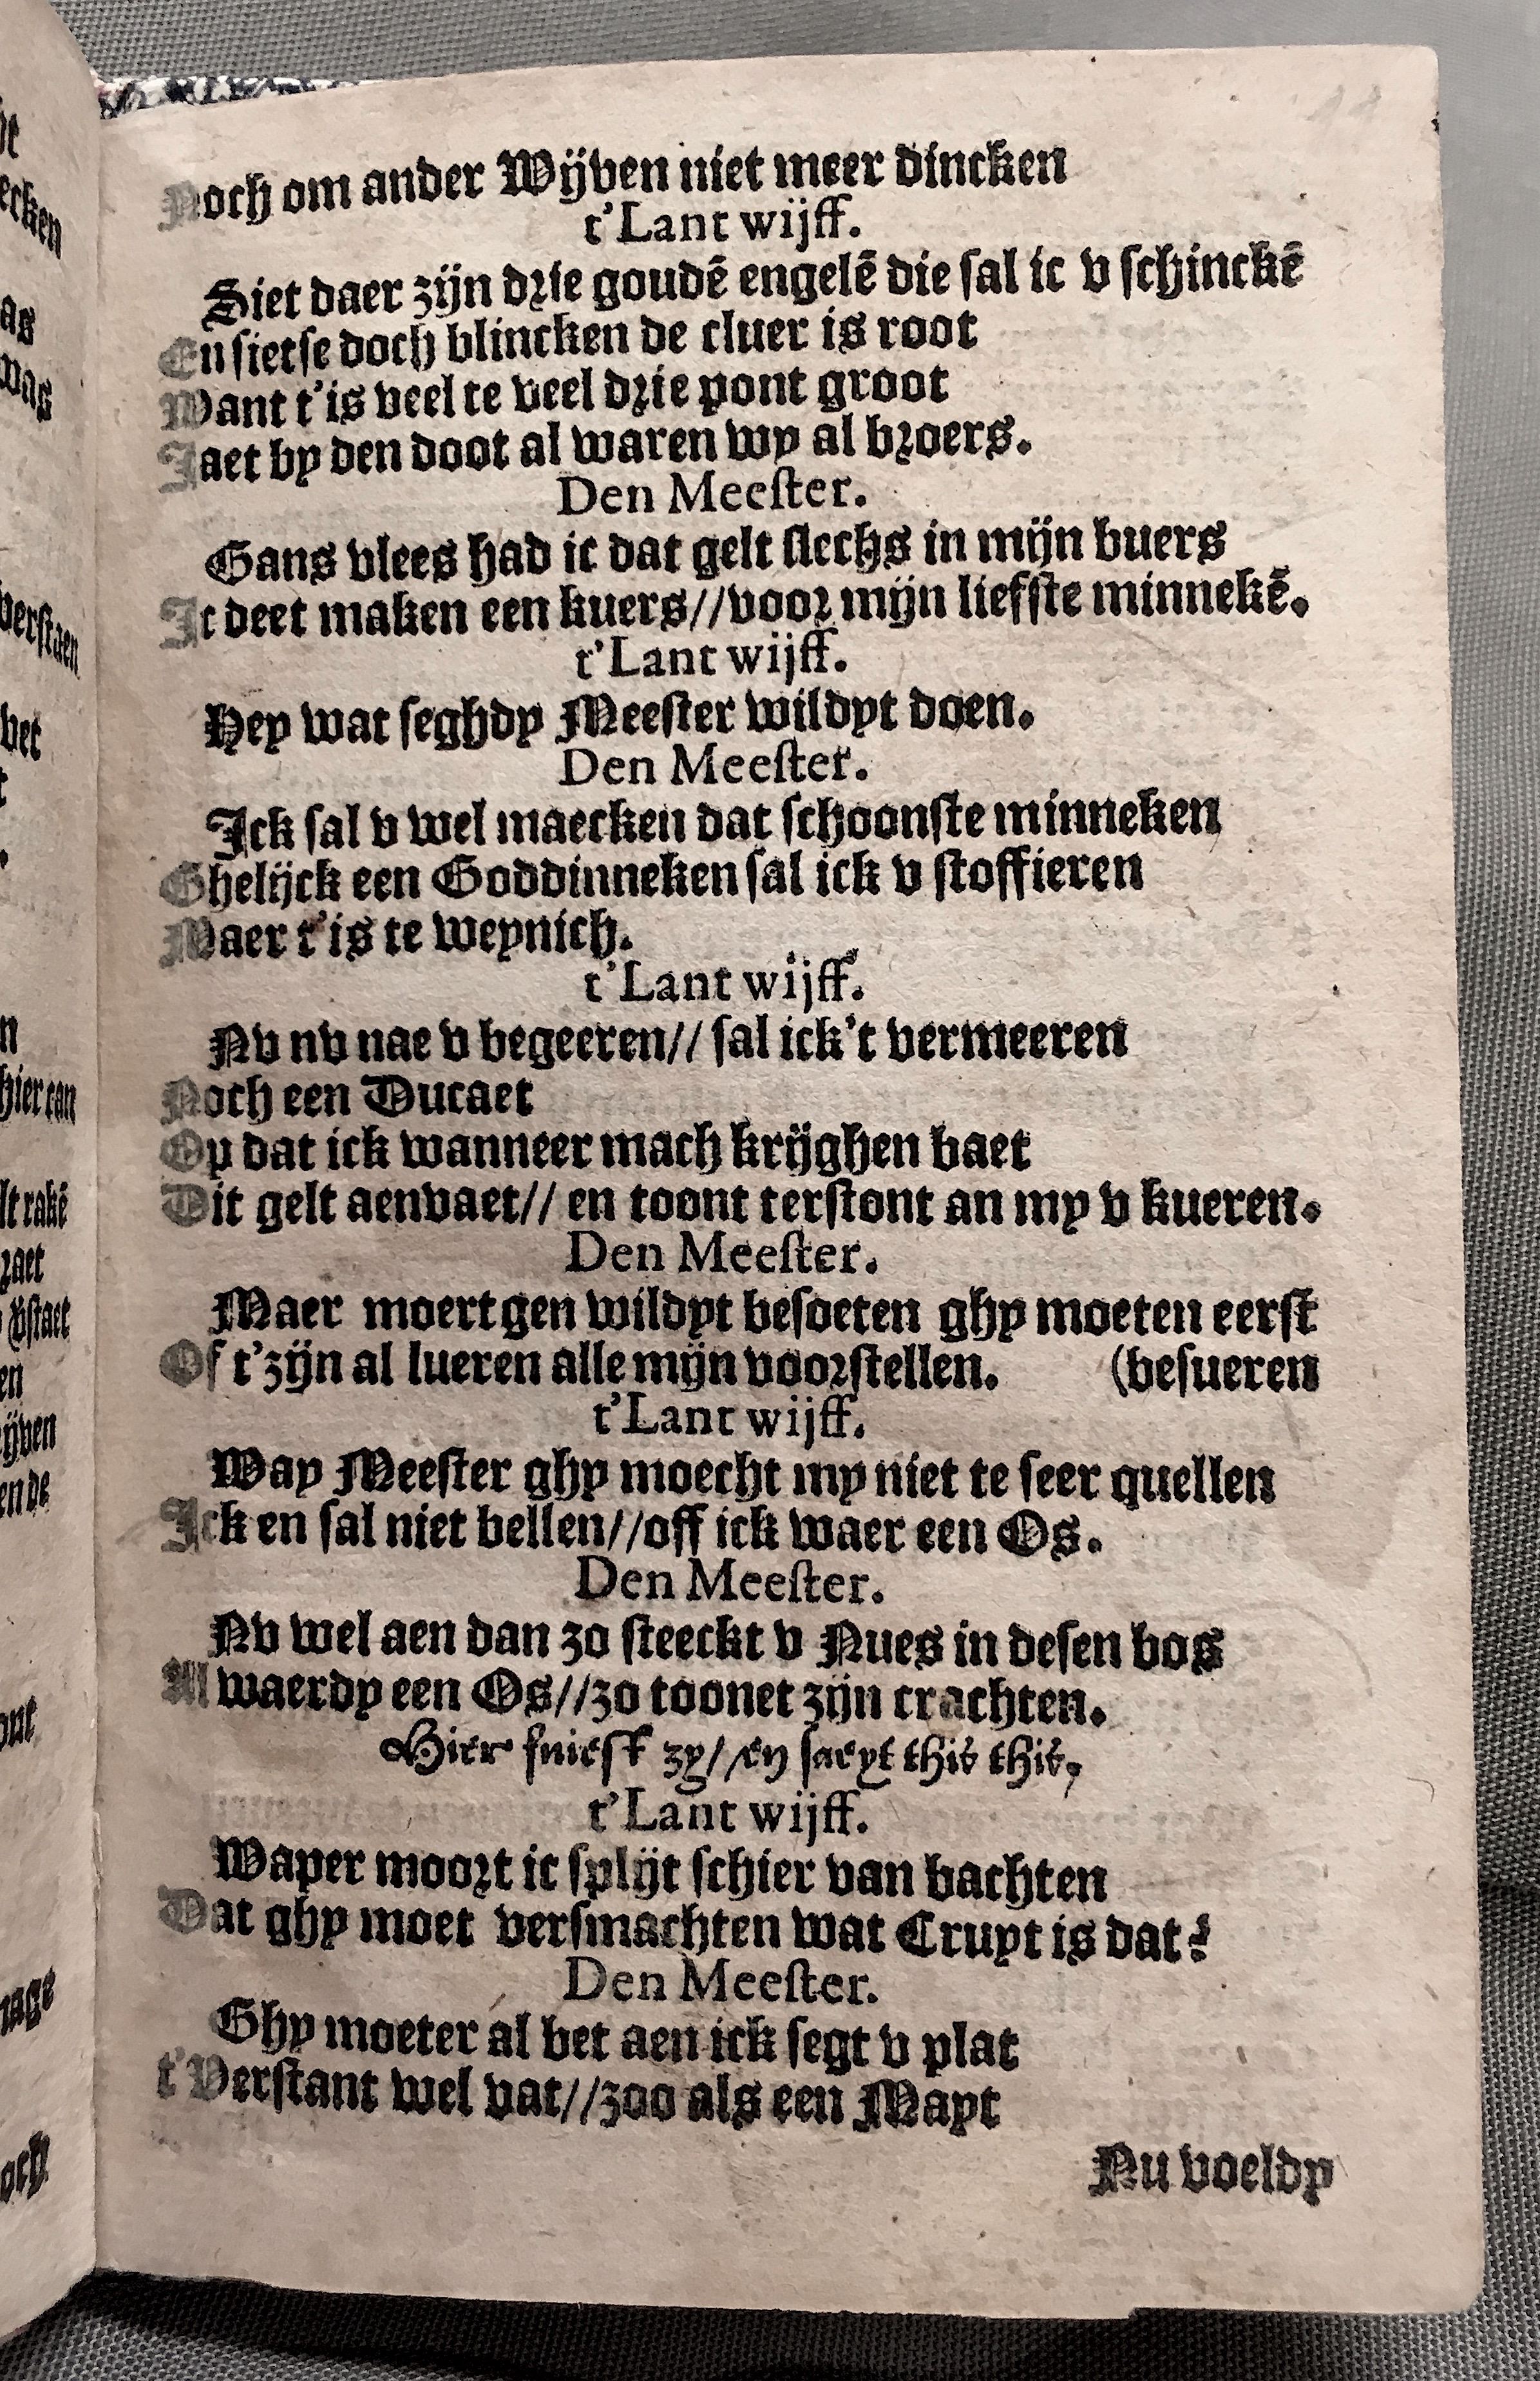 Noch om ander Wijven niet meer dincken
t'Lant wijff.
Siet daer zijn drie goudē engelē die sal ic v schinckē
En sietse doch blincken de cluer is root
Want t'is veel te veel drie pont groot
Jaet by den doot al waren wy al broers.
Den Meester.
Gans vlees had ic dat gelt slechs in mijn buers
Ic deet maken een kuers//voor mijn liefste minnekē.
t'Lant wijff.
Hey wat seghdy Meester wildyt doen.
Den Meester.
Jck sal v wel maecken dat schoonste minneken
Ghelijck een Goddinneken sal ick v stoffieren
Maer t'is te weynich.
t'Lant wijff.
Nv nv nae v begeeren// sal ick't vermeeren
Noch een Ducaet
Op dat ick wanneer mach krijghen baet
Dit gelt aenvaet// en toont terstont an my v kueren.
Den Meester.
Maer moertgen wildyt besoeten ghy moeten eerst
Of t'zijn al lueren alle mijn voorstellen. (besueren
t'Lant wijff.
Way Meester ghy moecht my niet te seer quellen
Jck en sal niet bellen//off ick waer een Os.
Den Meester.
Nv wel aen dan zo steeckt v Nues in desen bos
Al waerdy een Os//zo toonet zijn crachten.
Hier sniest zy//en seeyt this this,
t'Lant wijff.
Waper moort ic splijt schier van bachten
Dat ghy moet versmachten wat Cruyt is dat?
Den Meester.
Ghy moeter al bet aen ick segt v plat
t'Verstant wel vat//zoo als een Mayt
Nu voeldy